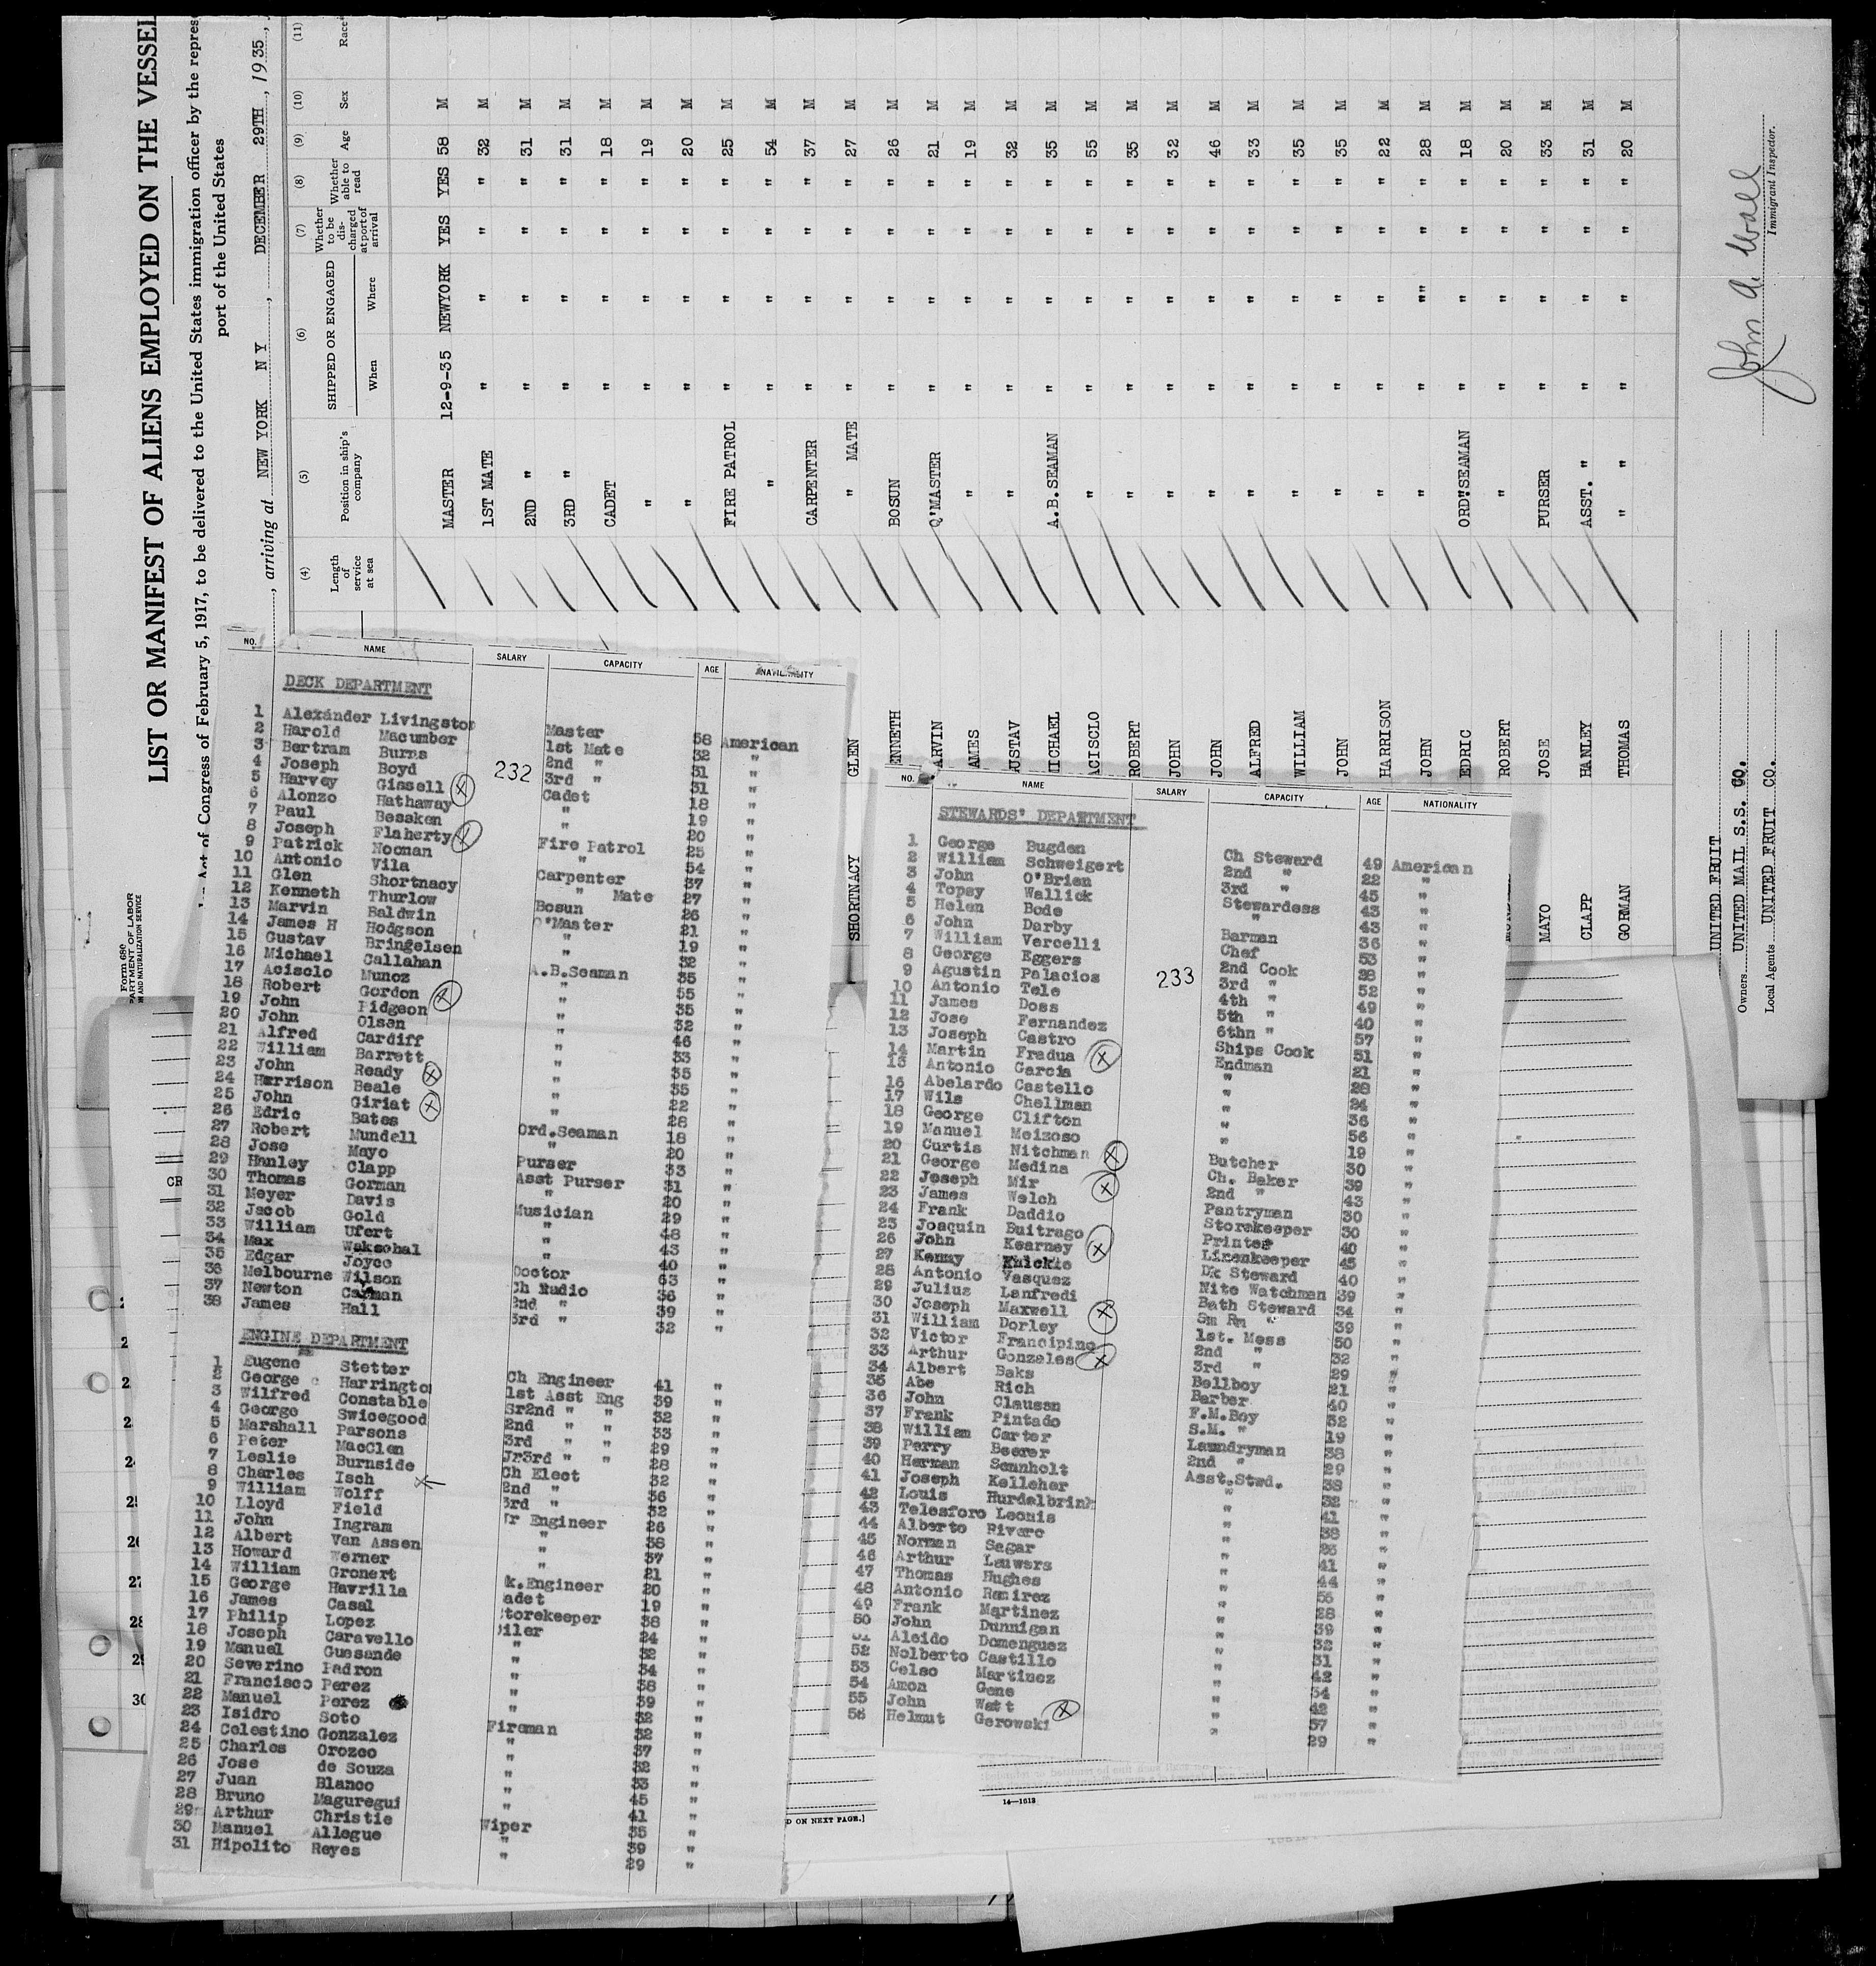 LIST OR MANIFEST OF ALIENS EMPLOYED ON THE VESSEL
Act of Congress of February 5, 1917, to be delivered to the United States immigration officer by the repres
port of the United States
, arriving at NEW YORK N Y , DECEMBER 29TH , 1935 ,
(4) (5) (6) (7) (8) (9) (10) (11)
Length of service at sea
Position in ship's company
SHIPPED OR ENGAGED
When Where
Whether to be discharged at port of arrival
Whether able to read
Age Sex Race
MASTER 12-9-35 NEWYORK YES YES 58 M
1ST MATE " " " " 32 M
2ND " " " " " 31 M
3RD " " " " " 31 M
CADET " " " " 18 M
" " " " " 19 M
" " " " " 20 M
FIRE PATROL " " " " 25 M
" " " " " 54 M
CARPENTER " " " " 37 M
SHORTNACY GLEN " MATE " " " " 27 M
ENNETH BOSUN " " " " 26 M
ARVIN Q'MASTER " " " " 21 M
AMES " " " " " 19 M
USTAV " " " " " 32 M
ICHAEL A.B.SEAMAN " " " " 35 M
ACISCLO " " " " " 55 M
ROBERT " " " " " 35 M
JOHN " " " " " 32 M
JOHN " " " " " 46 M
ALFRED " " " " " 33 M
WILLIAM " " " " " 35 M
JOHN " " " " " 35 M
HARRISON " " " " " 22 M
JOHN " " "" " " 28 M
EDRIC ORD"SEAMAN " " " " 18 M
ROBERT " " " " " 20 M
MAYO JOSE PURSER " " " " 33 M
CLAPP HANLEY ASST. " " " " " 31 M
GORMAN THOMAS " " " " " " 20 M
John A. Wall
Immigrant Inspector.
UNITED FRUIT
Owners UNITED MAIL S.S. CO.
Local Agents UNITED FRUIT CO.
Form 680
NO. NAME SALARY CAPACITY AGE NATIONALITY
DECK DEPARTMENT
232
1 Alexander Livingston Master 58 American
2 Harold Macumber 1st Mate 32 "
3 Bertram Burns 2nd " 31 "
4 Joseph Boyd 3rd " 31 "
5 Harvey Gissell Cadet 18 "
6 Alonzo Hathaway " 19 "
7 Paul Bessken " 20 "
8 Joseph Flaherty Fire Patrol 25 "
9 Patrick Noonan " 54 "
10 Antonio Vila Carpenter 37 "
11 Glen Shortnacy " Mate 27 "
12 Kenneth Thurlow Bosun 26 "
13 Marvin Baldwin Q'Master 21 "
14 James H Hodgson " 19 "
15 Gustav Bringelsen " 32 "
16 Michael Callahan A.B.Seaman 35 "
17 Acisclo Munoz " 55 "
18 Robert Gordon " 35 "
19 John Pidgeon " 32 "
20 John Olsen " 46 "
21 Alfred Cardiff " 33 "
22 William Barrett " 35 "
23 John Ready " 35 "
24 Harrison Beale " 22 "
25 John Giriat " 28 "
26 Edric Bates Ord.Seaman 18 "
27 Robert Mundell " 20 "
28 Jose Mayo Purser 33 "
29 Hanley Clapp Asst Purser 31 "
30 Thomas Gorman " 20 "
31 Meyer Davis Musician 29 "
32 Jacob Gold " 48 "
33 William Ufert " 43 "
34 Max Waksohal " 40 "
35 Edgar Joyce Doctor 63 "
36 Melbourne Wilson Ch Radio 36 "
37 Newton Carman 2nd " 39 "
38 James Hall 3rd " 32 "
ENGINE DEPARTMENT
1 Eugene Stetter Ch Engineer 41 "
2 George Harringto 1st Asst Eng 39 "
3 Wilfred Constable Sr2nd " " 32 "
4 George Swicegood 2nd " " 33 "
5 Marshall Parsons 3rd " " 29 "
6 Peter MacClen Jr3rd " " 28 "
7 Leslie Burnside Ch Elect 32 "
8 Charles Isch 2nd " 36 "
9 William Wolff 3rd " 32 "
10 Lloyd Field Jr Engineer 26 "
11 John Ingram " 38 "
12 Albert Van Assen " 37 "
13 Howard Werner " 21 "
14 William Gronert k.Engineer 20 "
15 George Havrilla adet 19 "
16 James Casal torekeeper 38 "
17 Philip Lopez Oiler 24 "
18 Joseph Caravello " 32 "
19 Manuel Guesande " 34 "
20 Severino Padron " 38 "
21 Francisco Perez " 39 "
22 Manuel Perez " 32 "
23 Isidro Soto Fireman 32 "
24 Celestino Gonzalez " 37 "
25 Charles Orozco " 32 "
26 Jose de Souza " 33 "
27 Juan Blanco " 45 "
28 Bruno Maguregui " 41 "
29 Arthur Christie Wiper 35 "
30 Manuel Allegue " 39 "
31 Hipolito Reyes " 29 "
NO. NAME SALARY CAPACITY AGE NATIONALITY
STEWARDS' DEPARTMENT
233
1 George Bugden Ch Steward 49 American
2 William Schweigert 2nd " 22 "
3 John O'Brien 3rd " 45 "
4 Topsy Wallick Stewardess 43 "
5 Helen Bode " 43 "
6 John Darby Barman 36 "
7 William Vercelli Chef 53 "
8 George Eggers 2nd Cook 28 "
9 Agustin Palacios 3rd " 52 "
10 Antonio Tele 4th " 49 "
11 James Doss 5th " 40 "
12 Jose Fernandez 6thn " 57 "
13 Joseph Castro Ships Cook 51 "
14 Martin Fradua Endman 21 "
15 Antonio Garcia " 28 "
16 Abelardo Castello " 24 "
17 Wils Chellman " 36 "
18 George Clifton " 56 "
19 Manuel Meizoso " 19 "
20 Curtis Nitchman Butcher 30 "
21 George Medina Ch. Baker 39 "
22 Joseph Mir 2nd " 43 "
23 James Welch Pantryman 30 "
24 Frank Daddio Storekeeper 30 "
25 Joaquin Buitrago Printer 40 "
26 John Kearney Linenkeeper 45 "
27 Kenny Knickle Dk Steward 40 "
28 Antonio Vasquez Nite Watchman 39 "
29 Julius Lanfredi Bath Steward 34 "
30 Joseph Maxwell Sm Rm " 39 "
31 William Dorley 1st. Mess 50 "
32 Victor Francipino 2nd " 32 "
33 Arthur Gonzales 3rd " 29 "
34 Albert Baks Bellboy 21 "
35 Abe Rich Barber 40 "
36 John Claussn F.M.Boy 32 "
37 Frank Pintado S.M. " 19 "
38 William Carter Laundryman 38 "
39 Perry Beerer 2nd " 29 "
40 Herman Sennholt Asst.Stwd. 38 "
41 Joseph Kelleher " 32 "
42 Louis Hurdalbrink " 41 "
43 Telesforo Leonis " 38 "
44 Alberto Rivero " 26 "
45 Norman Sagar " 41 "
46 Arthur Lauwers " 44 "
47 Thomas Hughes " 55 "
48 Antonio Ramirez " 28 "
49 Frank Martinez " 39 "
50 John Dunnigan " 32 "
51 Aleido Domenguez " 31 "
52 Nolberto Castillo " 42 "
53 Celso Martinez " 34 "
54 Amon Gene " 42 "
55 John Watt " 37 "
56 Helmut Gerowski " 29 "
D ON NEXT PAGE.]
14—1613